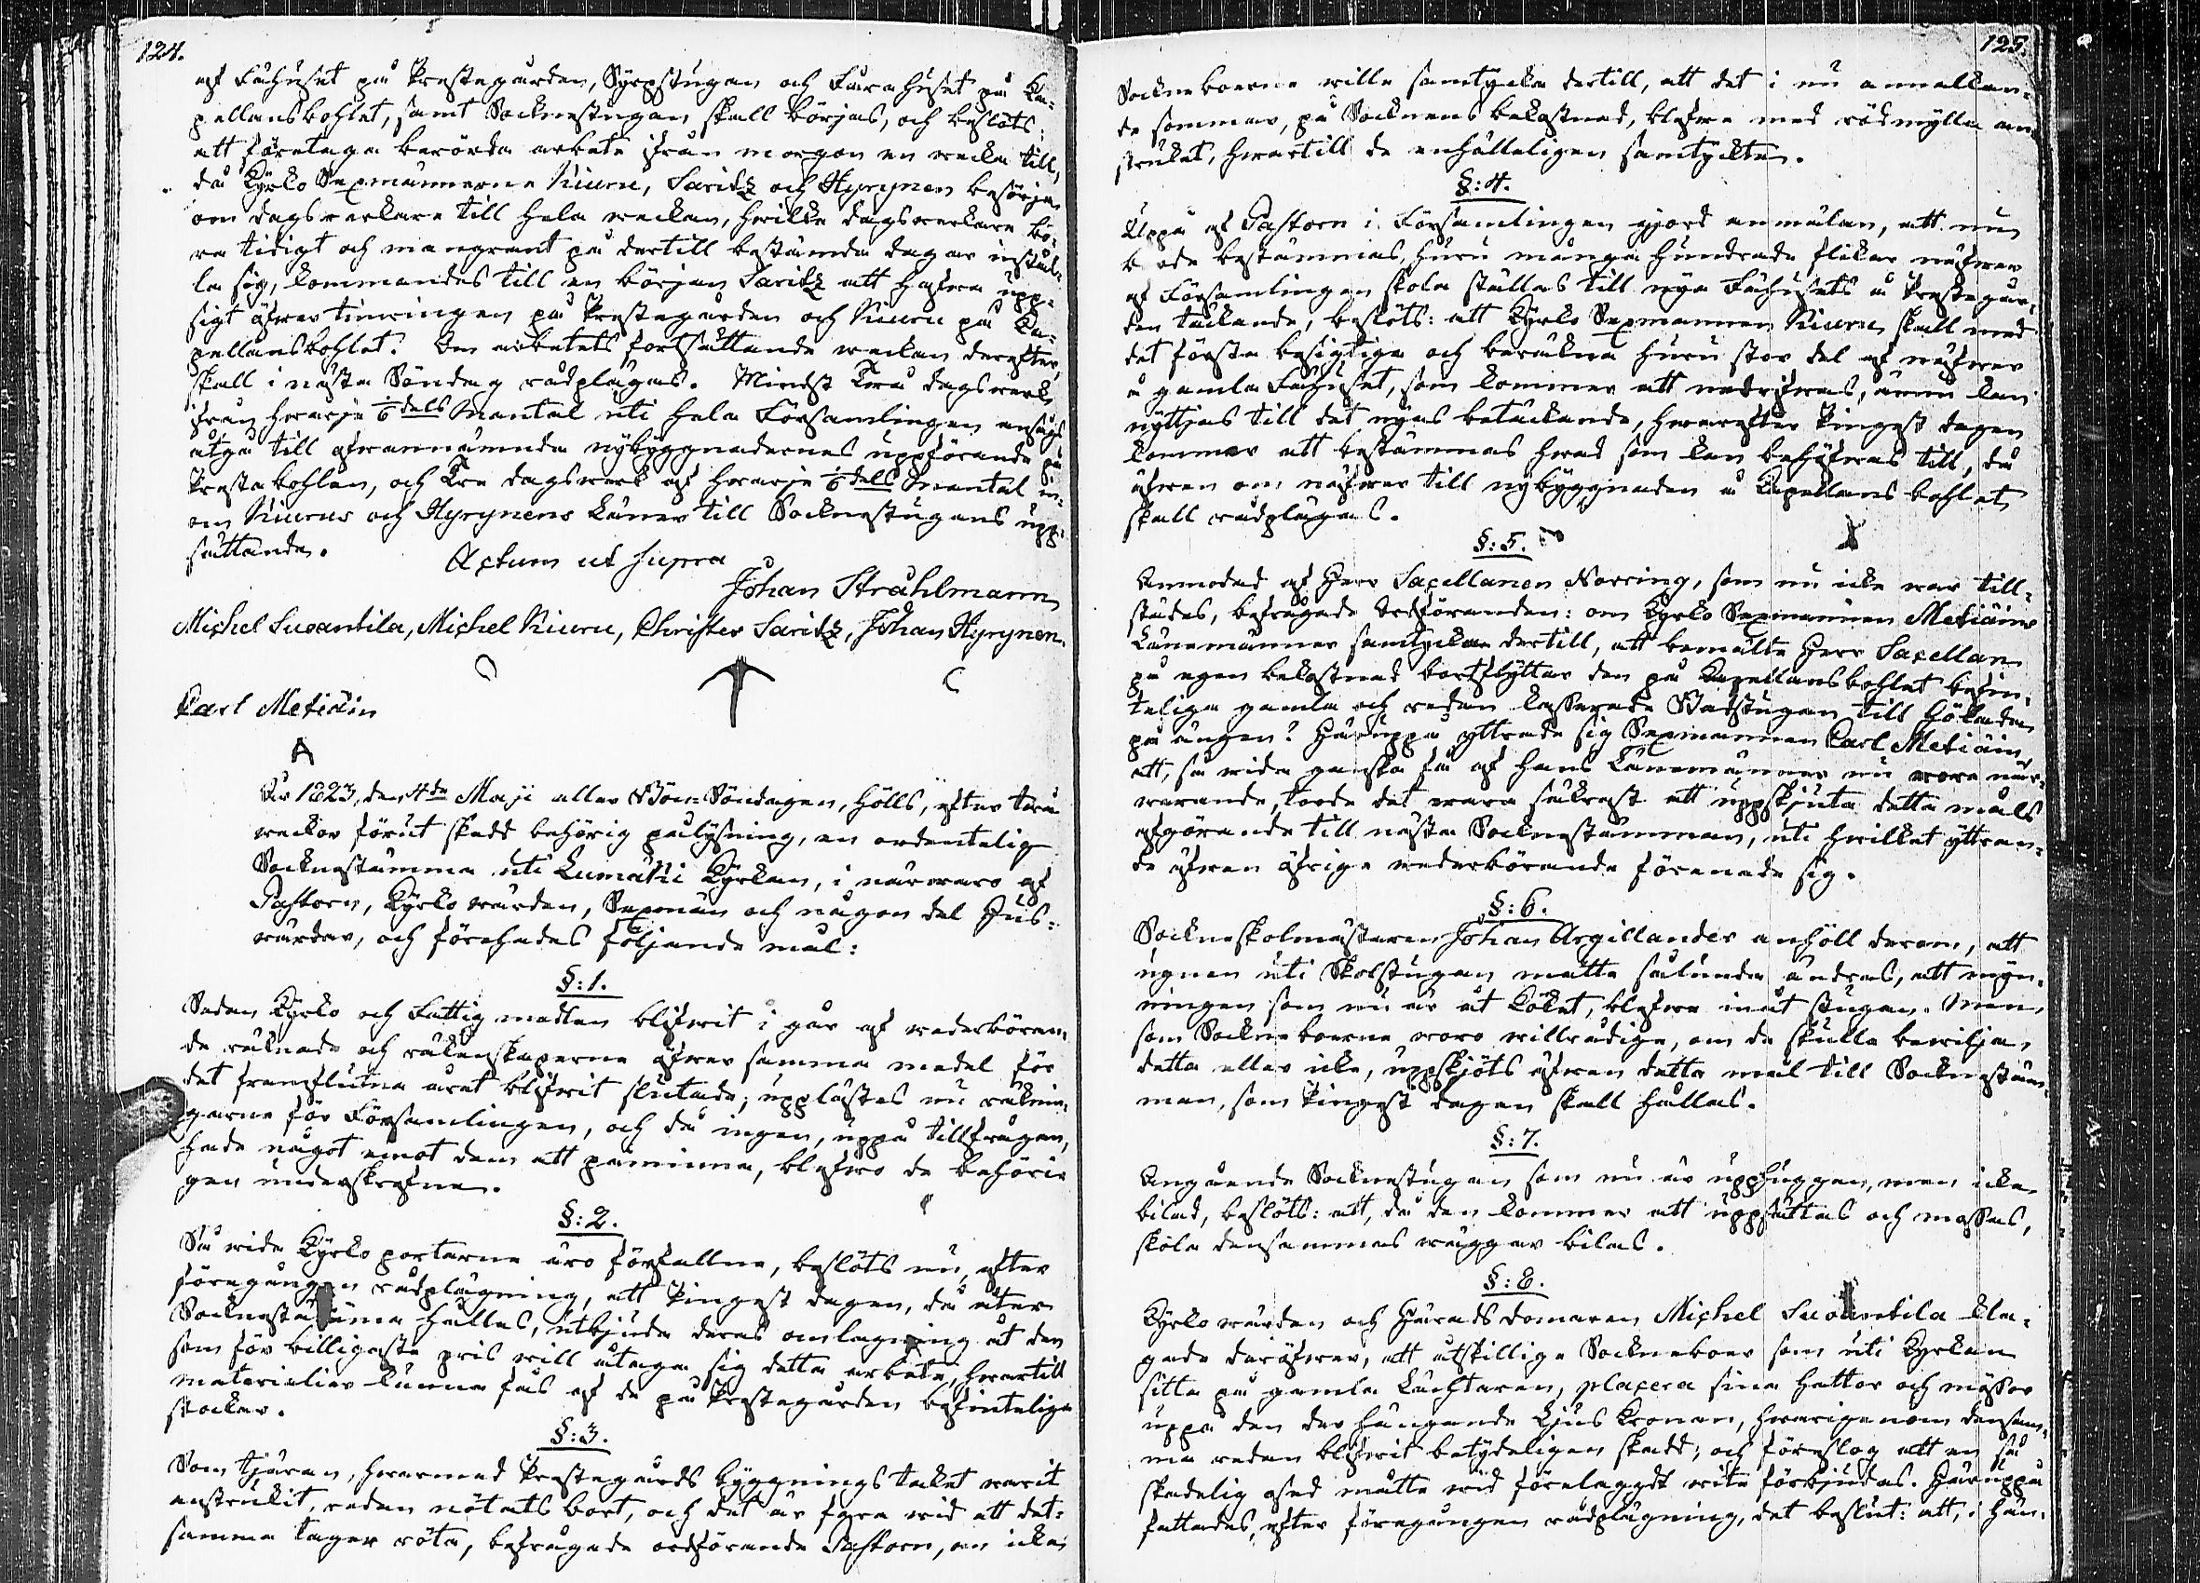 124.
af Fähuset på Prestegården, Syrpstugan och Farahuset på Ka-
pellansbohlet, samt Socknestugan skall börjas, och beslöts:
att företaga berörda arbete ifrån morgon en wecka till,
då Kyrko Sexmännerne Kiuru, Saritz och Hyrynen besörja
om dagswerkare till hela weckan, hwilka dagswerkare bö-
ra tidigt och mangrant på dertill bestämda dagar instäl-
la sig, kommandes till en början Saritz att hafwa upp-
sigt öfwer timringen på Prestegården och Kiuru på Ka-
pellansbohlet. Om arbetets fortsättande weckan derefter,
skall i nästa Söndag rådplägas. Minst Twå dagswerk
ifrån hwarje 1/6 dels Mantal uti hela Församlingen ansågs
åtgå till ofwannämnde nybyggnadernes uppförande på
Prestabohlen, och Tre dagswerk af hwarje 1/6 dels mantal in-
om Kiurus och Hyrynens Länar till Socknestugans upp-
sättande.
Actum ut supra
Johan Stråhlmann
Michel Suoantila, Michel Kiuru, Christer Saritz, Johan Hyrynen.
Carl Metiäin
År 1823, den 4de Maji eller Bön-Söndagen, hölls, efter twå
weckor förut skedd behörig pålysning, en ordentelig
Socknestämma uti Lumäki Kyrkan, i närwaro af
Pastorn, Kyrkowärden, Sexmän och någon del Hus-
wärdar, och förehades följande mål:
§: 1.
Sedan Kyrko och Fattig medlen blifwit i går af wederböran-
de räknade och räkenskaperne öfwer samma medel för
det framflutna året blifwit slutade; upplästes nu räknin-
garne för Församlingen, och då ingen, uppå tillfrågan,
hade något emot dem att påminna, blefwo de behöri-
gen underskrefne.
§: 2.
Så wida Kyrko portarne äro förfallne, beslöts nu, efter
föregången rådplägning, att Pingest dagen, då åter
Socknestämma hålles, utbjuda deras omlagning åt den
som för billigaste pris will åtaga sig detta arbete, hwartill
materialier kunna fås af de på Prestegården befinteliga
stockar.
§: 3.
Som tjäran, hwarmed Prestegårds byggnings taket warit
anstrukit, redan nötats bort, och det är fara wid att det-
samma tager röta, befrågade ordförande Pastorn, om icke
125.
Sockneboerne wille samtycka dertill, att det i nu annalkan-
de sommar, på Socknens bekostnad, blefwe med rödmylla an-
struket, hwartill de enhälleligen samtyckte.
§: 4.
Uppå af Pastorn i Församlingen gjord anmälan, att nu
borde bestämmas, huru många hundrade flikar näfwer
af Församlingen skola ställas till nya Fähusets å Prestegår-
den täckande, beslöts: att Kyrko Sexmannen Kiuru skall med
det första besigtiga och beräkna huru stor del af näfwer
å gamla Fähuset, som kommer att nedrifwas, ännu kan
nyttjas till det nyas betäckande, hwarefter Pingest dagen
kommer att bestämmas hwad som kan behöfwas till, då
äfwen om näfwer till nybyggnaden å Capellans bohlet
skall rådplägas.
§: 5.
Anmodad af Herr Sacellanen Norring, som nu icke war till-
städes, befrågade Ordföranden: om Kyrko Sexmannen Metiäins
Länemänner samtycka dertill, att bemälte Herr Sacellan
på egen bekostnad bortflyttar den på Capellansbohlet befin-
teliga gamla och redan kasserade Badstugan till Hölada
på ängen? Häruppå yttrade sig Sexmannen Carl Metiäin,
att, så wida ganska få af hans Länemänner nu woro när-
warande, torde det wara säkrast att uppskjuta detta måls
afgörande till nästa Socknestämman, uti hwilket yttran-
de äfwen öfrige wederbörande förenade sig.
§: 6.
Sockneskolmästaren Johan Argillander anhöll derom, att
ugnen uti Skolstugan måtte sålunda ändras, att myn-
ningen som nu är åt Köket, blefwe inåt stugan. Men
som Sockneboerne woro willrådige, om de skulle bewilja
detta eller icke, uppskjöts äfwen detta mål till Socknestäm-
man, som Pingest dagen skall hållas.
§: 7.
Angående Socknestugan som nu är upphuggen, men icke
bilad, beslöts: att, då den kommer att uppsättas och mossas,
skola densammas wäggar bilas.
§: 8.
Kyrkowärden och Häradsdomaren Michel Suoantila kla-
gade deröfwer, att åtskillige Sockneboer som uti Kyrkan
sitta på gamla Lächtaren, placera sina hattor och mössor
uppå den der hängande Ljus Kronan, hwarigenom densam-
ma redan blifwit betydeligen skadd; och föreslog att en så
skadelig osed måtte wid förelaggdt wite förbjudas. Häruppå
fattades, efter föregången rådplägning, det beslut: att, i hän-